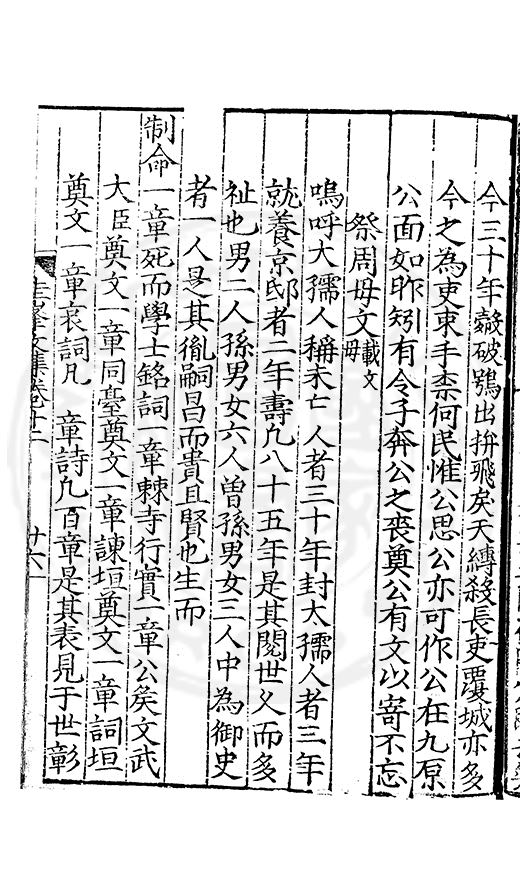 今三十年鷇破鶚出拚飛矣天縛殺長吏覆城亦多
今之為吏束手柰何民惟公思公亦可作公在九原
公面如昨矧有令子奔公之喪奠公有文以寄不忘
祭周母文載文母
嗚呼大孺人稱未亡人者三十年封太孺人者三年
就養京邸者二年壽凡八十五年是其閱世乆而多
祉也男二人孫男女六人曾孫男女三人中為御史
者一人是其胤嗣昌而貴且賢也生而
制命一章死而學士銘詞一章棘寺行實一章公矦文武
大臣奠文一章同臺奠文一章諫垣奠文一章詞垣
奠文一章哀詞凡　章詩凢百章是其表見于世彰
文集卷廿二
廿六